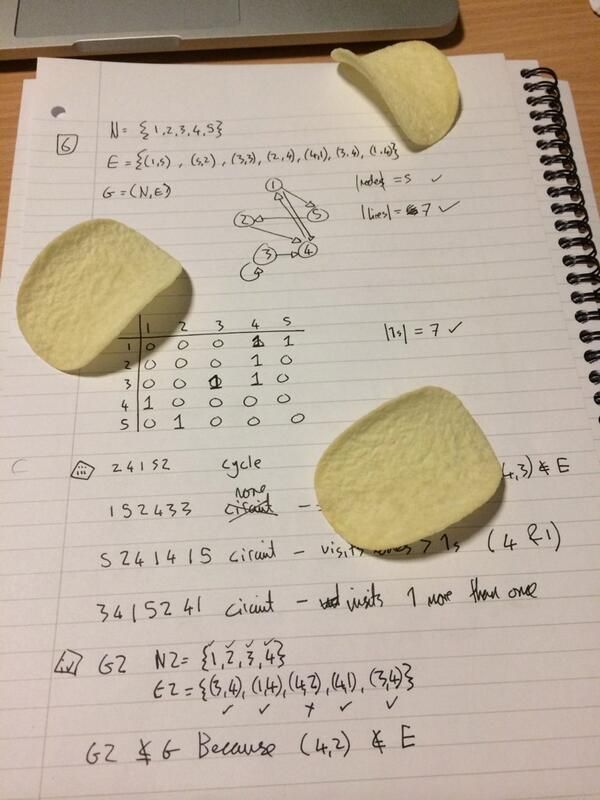 6
N = {1,2,3,4,5}
E = {(1,5), (5,2), (3,3), (2,4), (4,1), (3,4), (1,4)}
G = (N,E)
|nodes| = 5 ✓
|lines| = 7 ✓
1
2 5
3 4
1 2 3 4 5
1 0 0 0 1 1
2 0 0 0 1 0
3 0 0 1 1 0
4 1 0 0 0 0
5 0 1 0 0 0
|1s| = 7 ✓
iii 24152 cycle
none
152433 circuit – 4,3) ∉ E
5241415 circuit – visits nodes > 1s (4 & 1)
3415241 circuit – visits 1 more than once
iv G2 N2 = {1,2,3,4}
✓ ✓ ✓ ✓
E2 = {(3,4),(1,4),(4,2),(4,1),(3,4)}
✓ ✓ x ✓ ✓
G2 ⊄ G Because (4,2) ∉ E